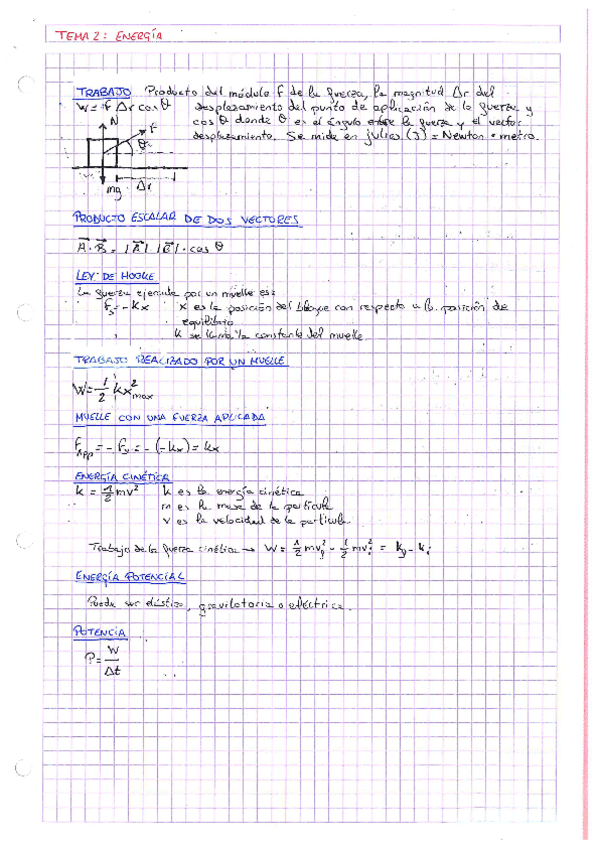 TEMA 2: ENERGÍA
TRABAJO Producto del módulo F de la fuerza, la magnitud Δr del
W = F Δr cos θ desplazamiento del punto de aplicación de la fuerza y
cos θ donde θ es el ángulo entre la fuerza y el vector
desplazamiento. Se mide en julios (J) = Newton · metro.
N
F
θ
mg
Δr
PRODUCTO ESCALAR DE DOS VECTORES
A · B = |A| |B| · cos θ
LEY DE HOOKE
La fuerza ejercida por un muelle es:
Fs = -kx x es la posición del bloque con respecto a la posición de
equilibrio
k se llama la constante del muelle.
TRABAJO REALIZADO POR UN MUELLE
W = 1/2 kx²max
MUELLE CON UNA FUERZA APLICADA
FApp = -Fs = -(-kx) = kx
ENERGÍA CINÉTICA
k = 1/2 mv² k es la energía cinética
m es la masa de la partícula
v es la velocidad de la partícula
Trabajo de la fuerza cinética → W = 1/2 mv²f - 1/2 mv²i = kf - ki
ENERGÍA POTENCIAL
Puede ser elástica, gravitatoria o eléctrica.
POTENCIA
P = W/Δt